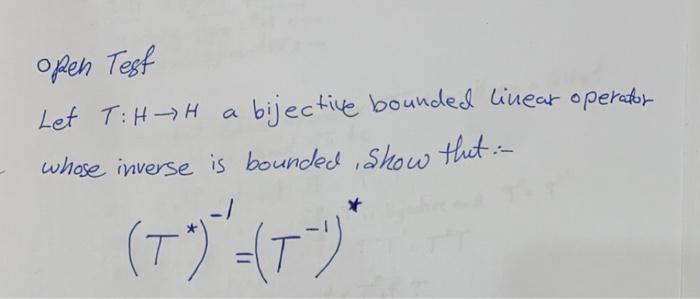 open Test
Let T:H→H a bijective bounded linear operator
whose inverse is bounded, Show that:-
(T*)⁻¹=(T⁻¹)*